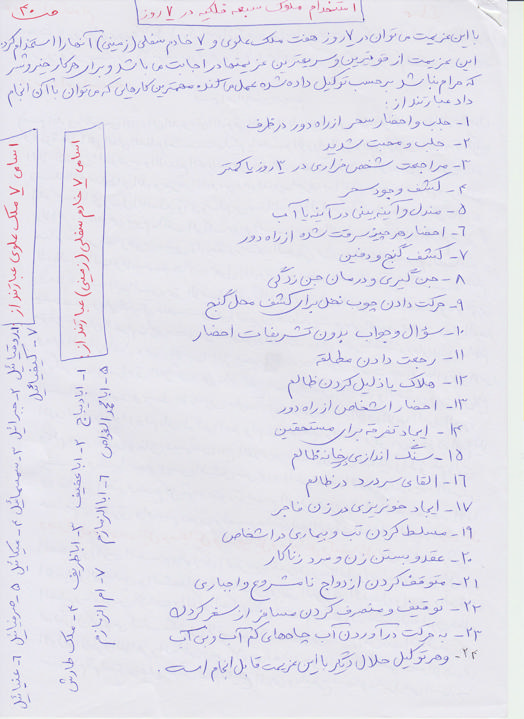 ص ۳۰
استخدام ملوک سبعه فلکیه در ۷ روز
با این عزیمت می توان در ۷ روز هفت ملک علوی و ۷ خادم سفلی (زمینی) آنها را استخدام کرد
این عزیمت از قویترین و سریعترین عزیمتها در اجابت می باشد و برای هر کار خیر و شر
که حرام نباشد بر حسب توکیل داده شده عمل می کند مهمترین کارهایی که می توان با آن انجام
داد عبارتند از:
۱- جلب و احضار سحر از راه دور در ظرف
۲- جلب و محبت شدید
۳- مراجعت شخص فراری در ۳ روز یا کمتر
۴- کشف وجود سحر
۵- مندل و آینه بینی در آینه یا آب
۶- احضار هر چیز سرقت شده از راه دور
۷- کشف گنج و دفین
۸- جن گیری و درمان جن زدگی
۹- حرکت دادن چوب نخل برای کشف محل گنج
۱۰- سؤال و جواب بدون تشریفات احضار
۱۱- رجعت دادن مطلقه
۱۲- هلاک یا ذلیل کردن ظالم
۱۳- احضار اشخاص از راه دور
۱۴- ایجاد تفرقه برای مستحقین
۱۵- سنگ اندازی بخانه ظالم
۱۶- القای سردرد در ظالم
۱۷- ایجاد خونریزی در زن فاجر
۱۹- مسلط کردن تب و بیماری در اشخاص
۲۰- عقد و بستن زن و مرد زناکار
۲۱- متوقف کردن ازدواج نامشروع و اجباری
۲۲- توقیف و منصرف کردن مسافر از سفر کردن
۲۳- به حرکت درآوردن آب چاههای کم آب و بی آب
۲۴- و هر توکیل حلال دیگر با این عزیمت قابل انجام است.
اسامی ۷ خادم سفلی (زمینی) عبارتند از:
۱- ابادیباج ۲- اباعفیف ۳- اباظریف ۴- ملک طارش
۵- ابامحمد الغواص ۶- ابا الزمازم ۷- ام الزمازم
اسامی ۷ ملک علوی عبارتند از
۱- روقیائیل ۲- جبرائیل ۳- سمسمائیل ۴- میکائیل ۵- صرفیائیل ۶- عنیائیل
۷- کسفیائیل